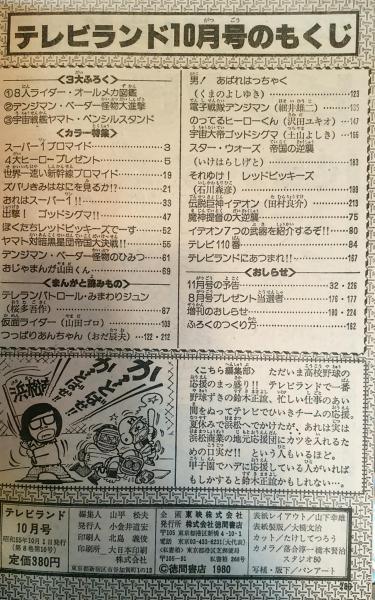 テレビランド10月号のもくじ
<3大ふろく>
①8人ライダー・オールメカ図鑑
②デンジマン・ベーダー怪物大進撃
③宇宙戦艦ヤマト・ペンシルスタンド
<カラー特集>
スーパー1ブロマイド 3
4大ヒーロープレゼント 5
世界一速い新幹線ブロマイド 19
ズバリきみはなにを見るか?! 21
おれはスーパー1!! 33
出撃!ゴッドシグマ!! 47
ぼくたちレッドビッキーズでーす 52
ヤマト対暗黒星団帝国大決戦!! 55
デンジマン・ベーダー怪物のひみつ 61
おじゃまんが山田くん 69
<まんがと読みもの>
テレランパトロール・みまわりジュン
(桜多吾作) 87
仮面ライダー(山田ゴロ) 103
つっぱりあんちゃん(おだ辰夫) 122・212
男!あばれはっちゃく
(くまのよしゆき) 123
電子戦隊デンジマン(細井雄二) 135
のってるヒーローくん(沢田ユキオ) 147
宇宙大帝ゴッドシグマ(土山よしき) 166
スター・ウォーズ 帝国の逆襲
(いけはらしげと) 183
それゆけ!レッドビッキーズ
(石川森彦) 198
伝説巨神イデオン(田村良介) 213
魔神提督の大逆襲 75
イデオン7つの武器を紹介するぞ!! 80
テレビ110番 84
テレビランドにあつまれ!! 167
<おしらせ>
11月号の予告 32・226
8月号プレゼント当選者 176・177
増刊のおしらせ 180・224
ふろくのつくり方 162
<こちら編集部> ただいま高校野球の
応援のまっ盛り!! テレビランドで一番
野球ずきの鈴木正誼、忙しい仕事のあい
間をぬってテレビでひいきチームの応援。
夏休みで浜松へでかけたが、あれは実は
浜松商業の地元応援団にカツを入れるた
めの口実だ!! という人もいるほど。
甲子園でハデに応援している人がいれば
もしかすると鈴木正誼かもしれない…。
テレビランド
10月号
昭和55年10月1日発行
(第8巻第10号)
定価380円
編集人 山平松夫
発行人 小金井道宏
印刷人 北島義俊
印刷所 大日本印刷
株式会社
企画 東映株式会社
発行所 株式会社徳間書店
〒105 東京都港区新橋4-10-1
©徳間書店 1980
表紙レイアウト/山下幸雄
表紙製版/大橋文治
カット/たけしてつろう
カメラ/落合淳一・橋本賢治
スタジオ80
写植・版下/バンアート